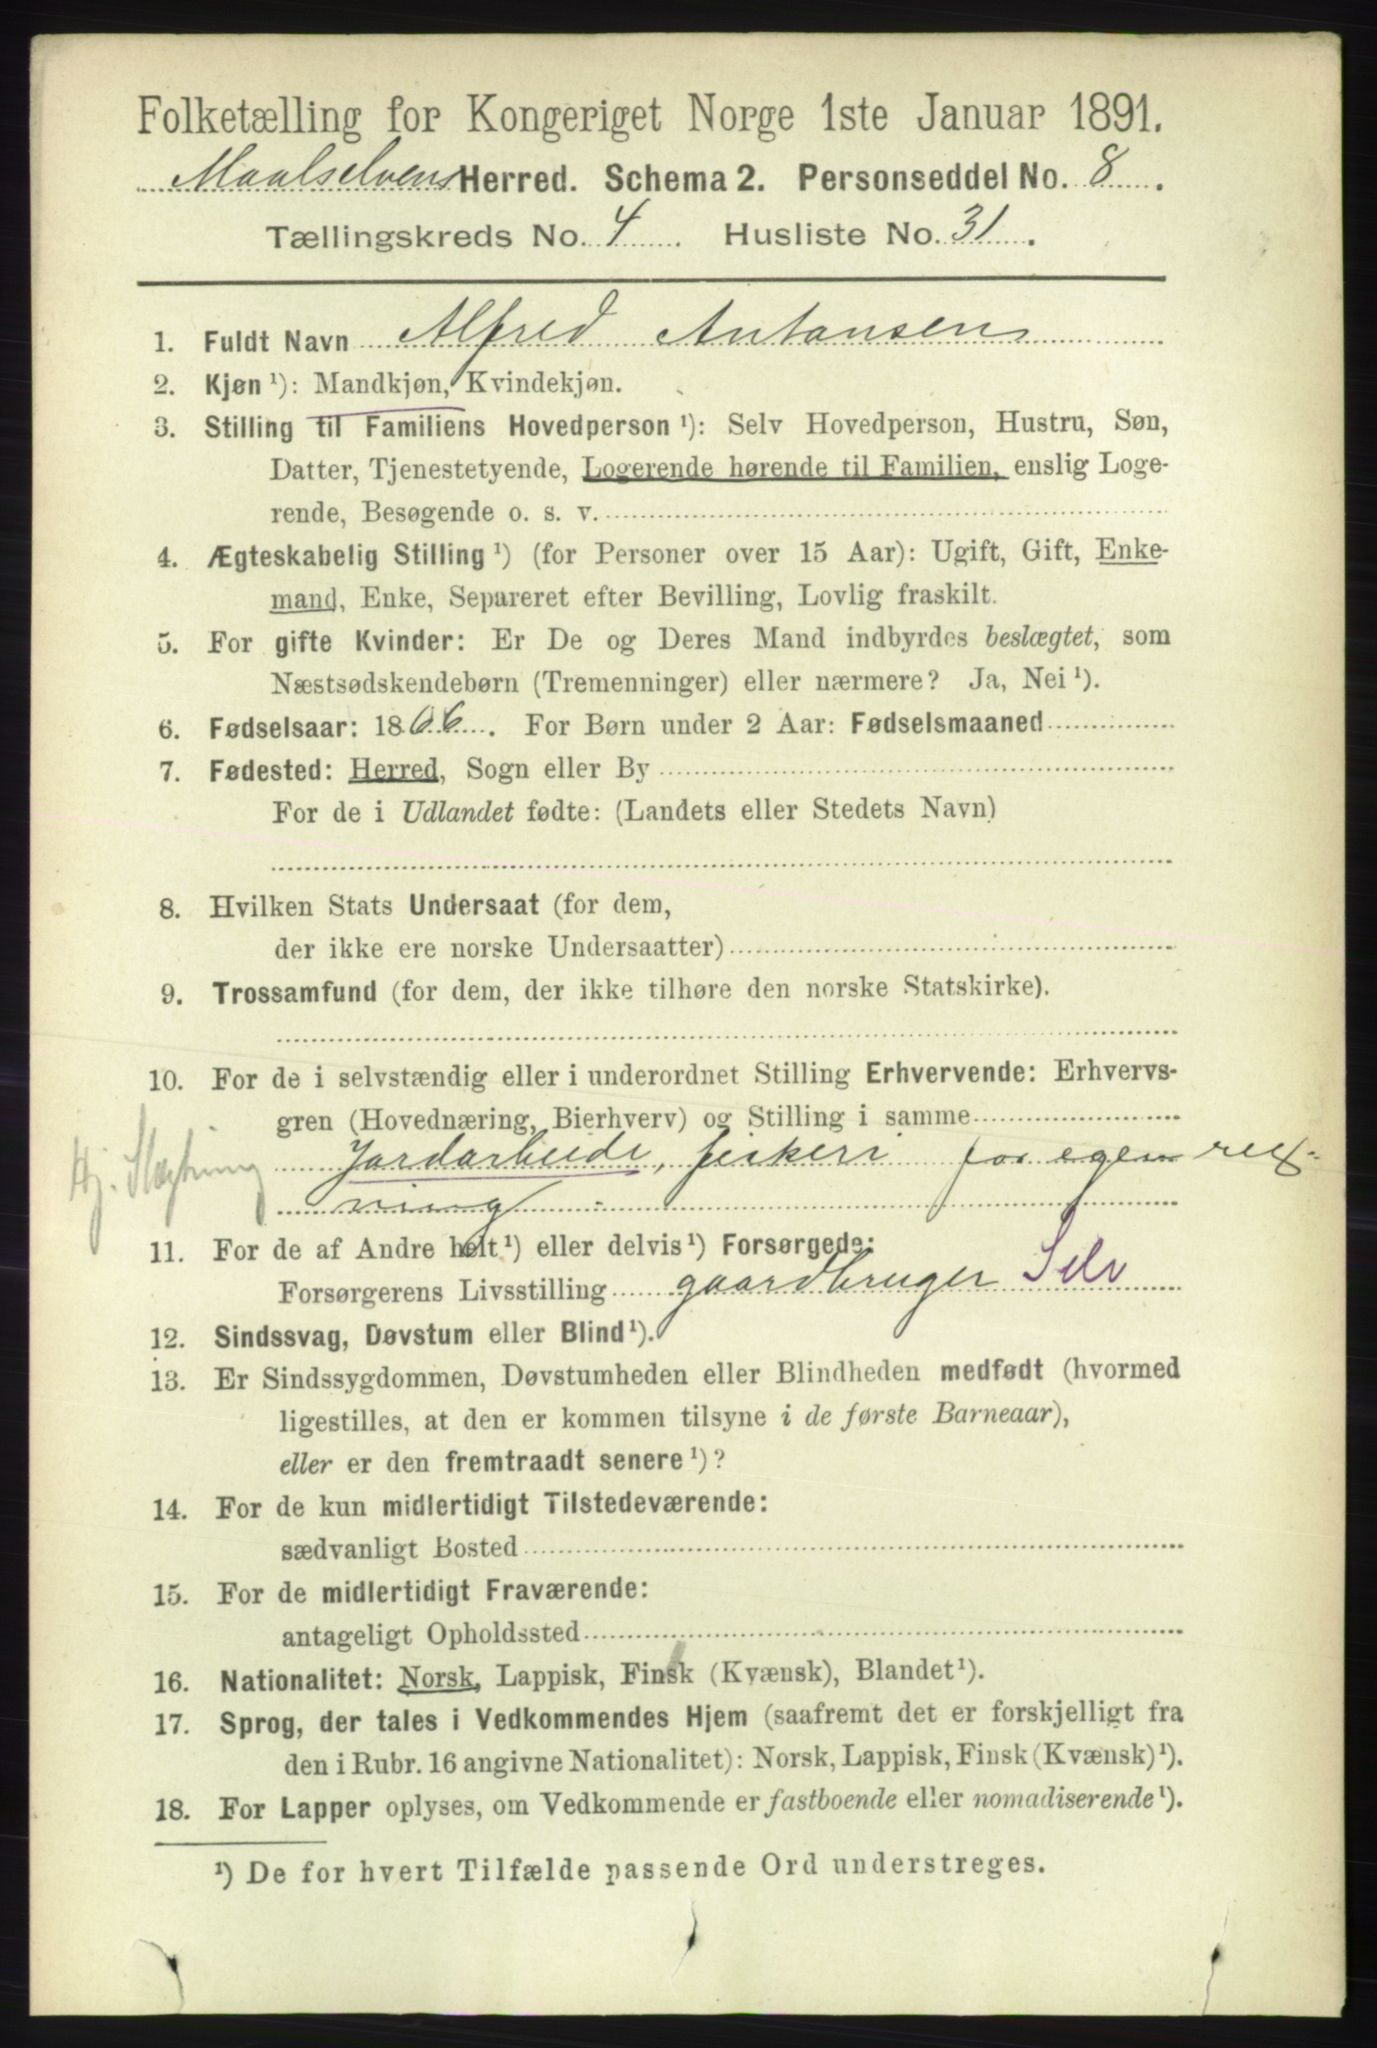 Folketælling for Kongeriget Norge 1ste Januar 1891.
Maalselvens Herred. Schema 2. Personseddel No. 8.
Tællingskreds No. 4 Husliste No. 31.
1. Fuldt Navn Alfred Antonsen
2. Kjøn ¹): Mandkjøn, Kvindekjøn.
3. Stilling til Familiens Hovedperson ¹): Selv Hovedperson, Hustru, Søn,
Datter, Tjenestetyende, Logerende hørende til Familien, enslig Loge-
rende, Besøgende o. s. v.
4. Ægteskabelig Stilling ¹) (for Personer over 15 Aar): Ugift, Gift, Enke-
mand, Enke, Separeret efter Bevilling, Lovlig fraskilt.
5. For gifte Kvinder: Er De og Deres Mand indbyrdes beslægtet, som
Næstsødskendebørn (Tremenninger) eller nærmere? Ja, Nei ¹).
6. Fødselsaar: 1866. For Børn under 2 Aar: Fødselsmaaned
7. Fødested: Herred, Sogn eller By
For de i Udlandet fødte: (Landets eller Stedets Navn)
8. Hvilken Stats Undersaat (for dem,
der ikke ere norske Undersaatter)
9. Trossamfund (for dem, der ikke tilhøre den norske Statskirke).
10. For de i selvstændig eller i underordnet Stilling Erhvervende: Erhvervs-
gren (Hovednæring, Bierhverv) og Stilling i samme
Hj. Slægtning Jordarbeide, fiskeri for egen reg-
ning
11. For de af Andre helt ¹) eller delvis ¹) Forsørgede:
Forsørgerens Livsstilling gaardbruger Selv
12. Sindssvag, Døvstum eller Blind ¹).
13. Er Sindssygdommen, Døvstumheden eller Blindheden medfødt (hvormed
ligestilles, at den er kommen tilsyne i de første Barneaar),
eller er den fremtraadt senere ¹)?
14. For de kun midlertidigt Tilstedeværende:
sædvanligt Bosted
15. For de midlertidigt Fraværende:
antageligt Opholdssted
16. Nationalitet: Norsk, Lappisk, Finsk (Kvænsk), Blandet ¹).
17. Sprog, der tales i Vedkommendes Hjem (saafremt det er forskjelligt fra
den i Rubr. 16 angivne Nationalitet): Norsk, Lappisk, Finsk (Kvænsk) ¹).
18. For Lapper oplyses, om Vedkommende er fastboende eller nomadiserende ¹).
¹) De for hvert Tilfælde passende Ord understreges.